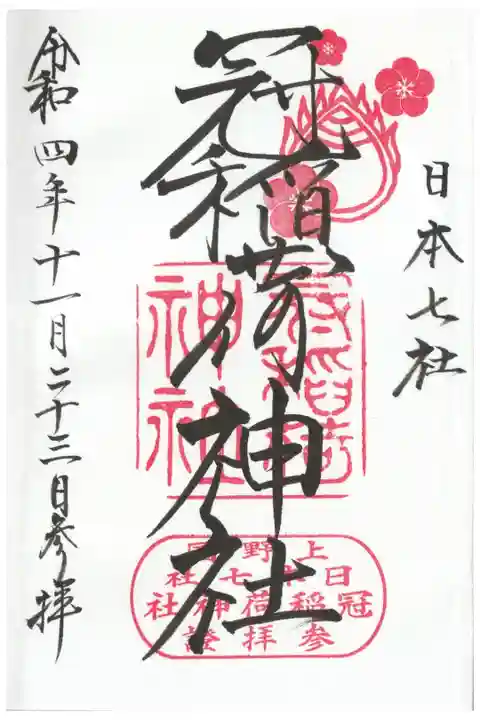 日本七社
冠稲荷神社
令和四年十一月二十三日参拝
冠稲荷
神社
上野國
日本七社
冠稲荷神社
参拝證